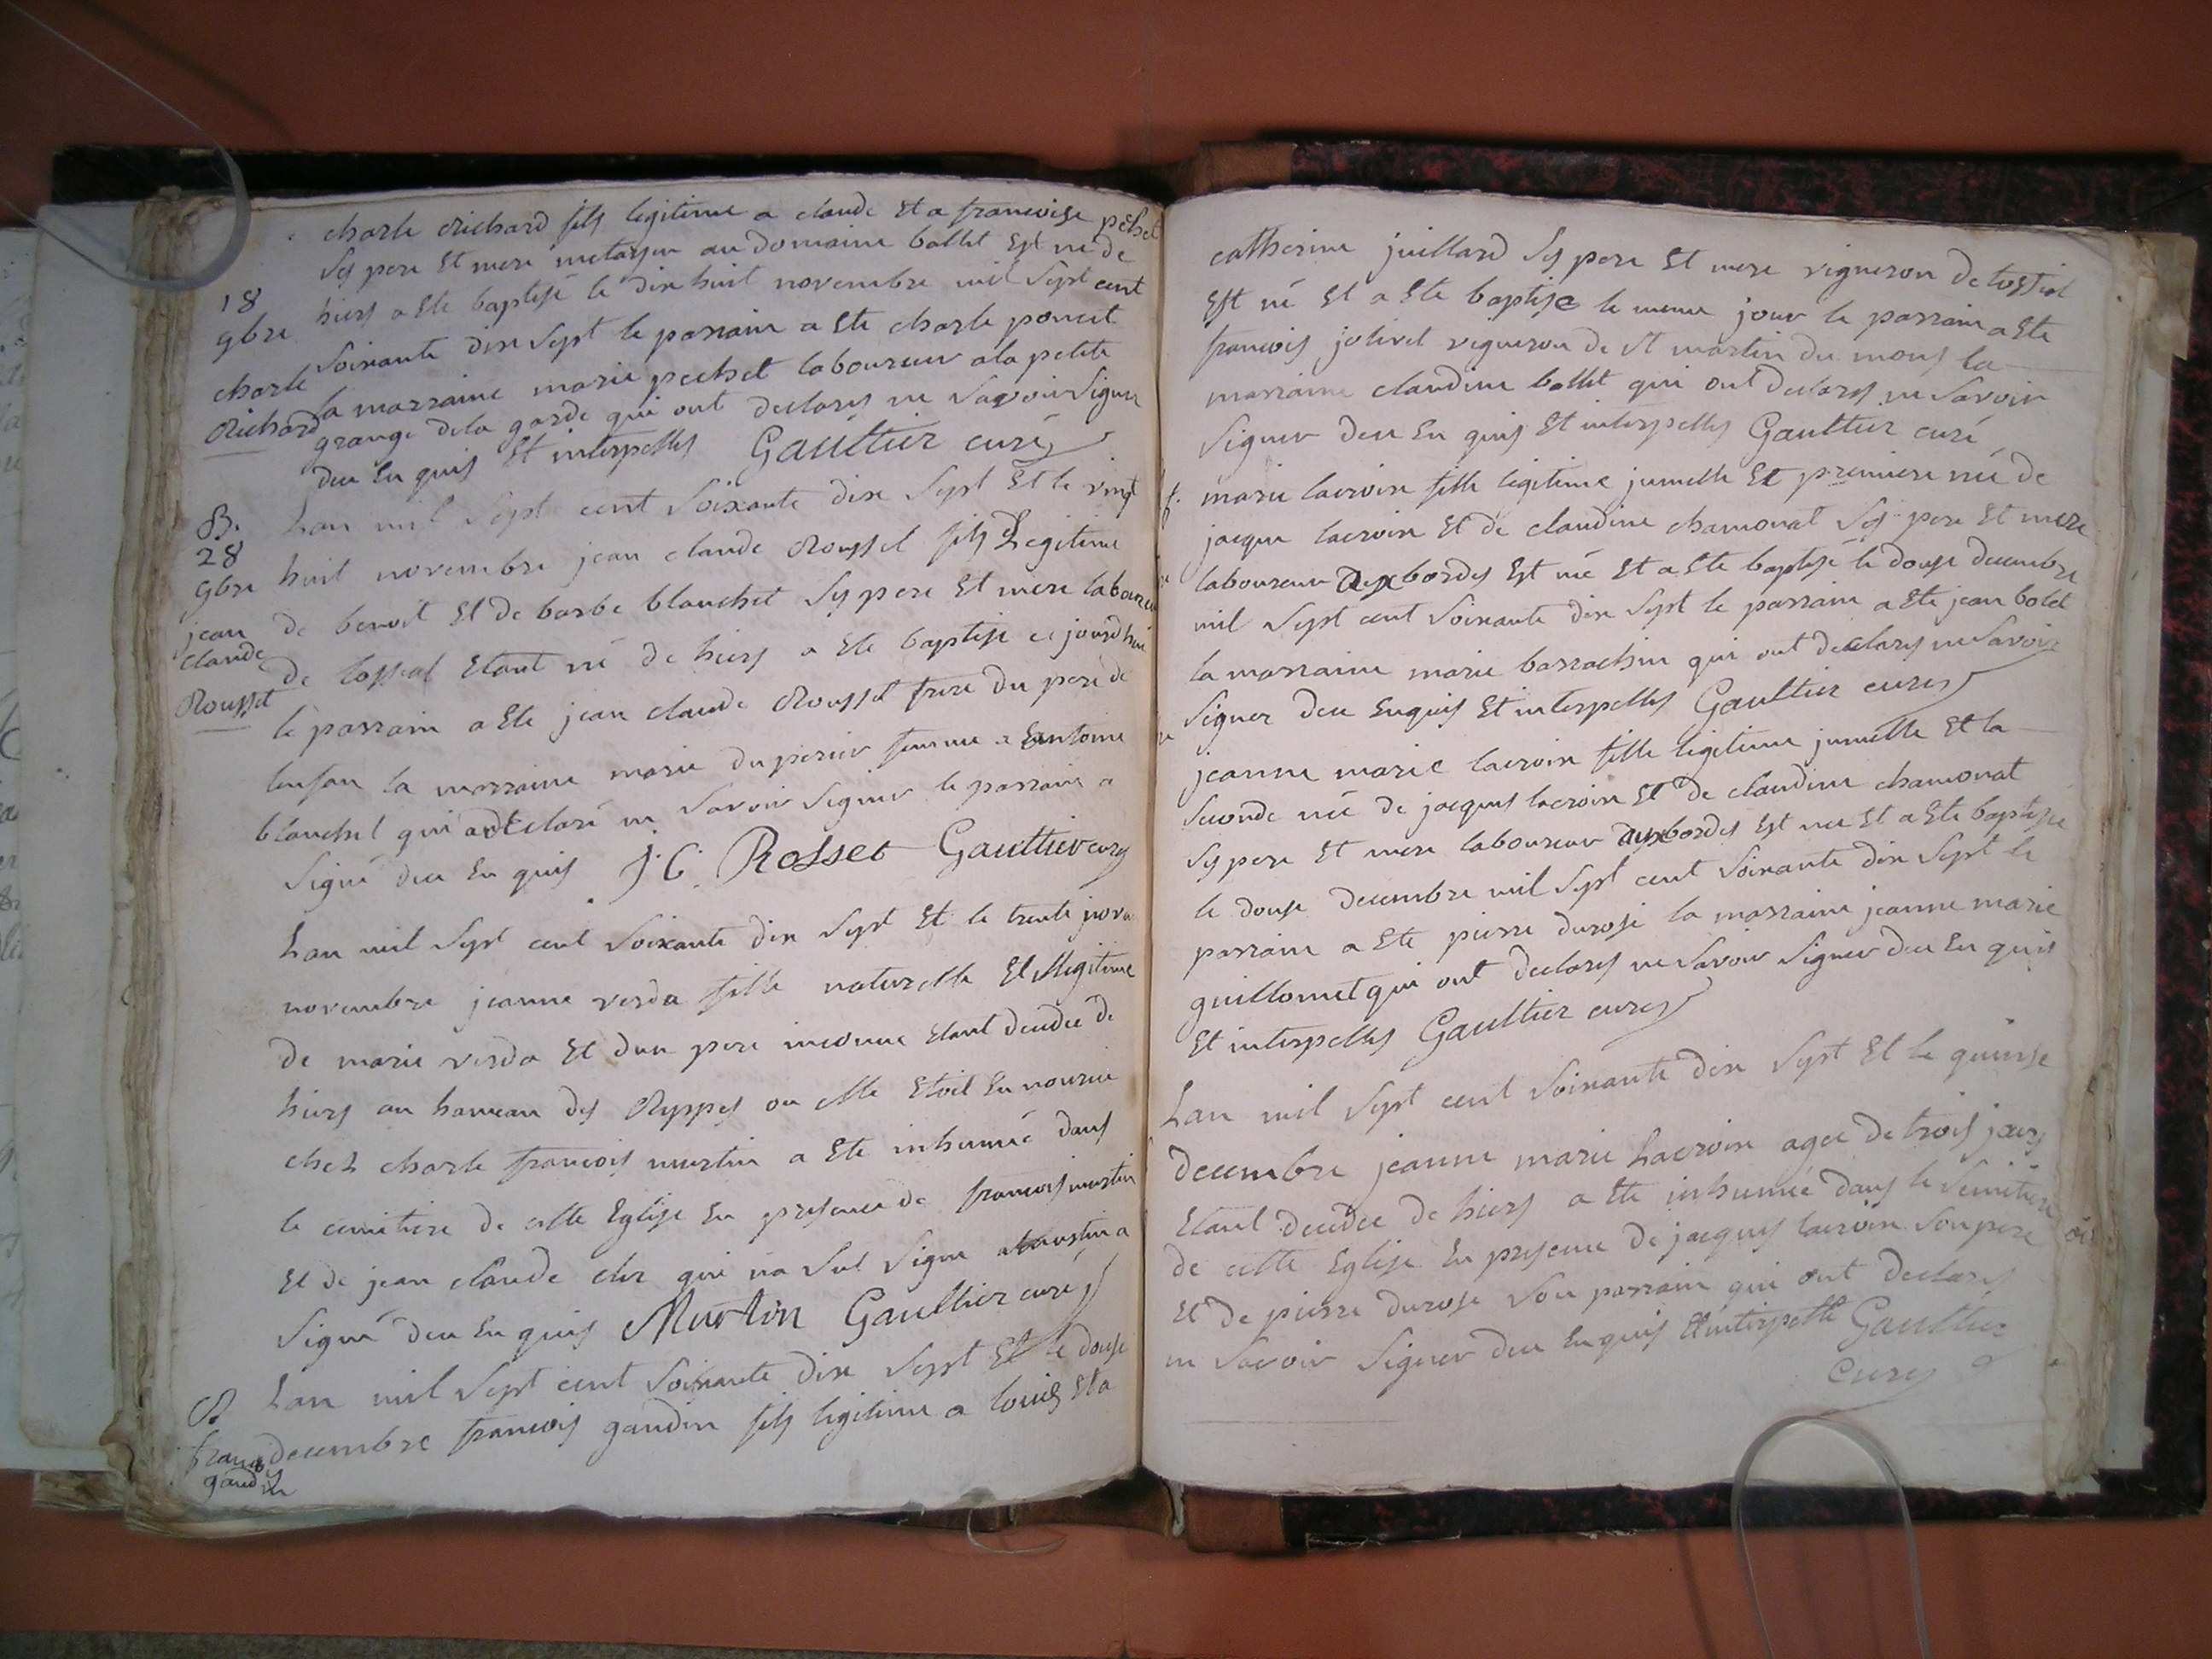 charle Richard fils legitime a claude et a francoise pechet
ses pere et mere metayer au domaine bollet est ne de
18
9bre
hiers a ete baptisé le dix huit novembre mil sept cent
charle
Richard
soixante dix sept le parrain a ete charle poncet
la marraine marie pechet laboureur a la petite
grange de la garde qui ont declares ne savoir signer
deu enquis et interpelles Gaultier curé
B.
28
9bre
jean
claude
Rousset
Lan mil sept cent soixante dix sept et le vingt
huit novembre jean claude Rousset fils Legitime
de benoit et de barbe blanchet ses pere et mere laboureur
de tossiat etant né de hiers a ete baptise ce jourdhui
le parrain a ete jean claude Rousset frere du pere de
lenfan la marraine marie duperier femme a antoine
blanchet qui a declaré ne savoir signer le parrain a
signé deu enquis J. C. Rosset Gaultier curé
Lan mil sept cent soixante dix sept et le trente
novembre jeanne verda fille naturelle et illegitime
de marie verda et dun pere inconnue etant decedee de
hiers au hameau des Rippes ou elle etoit en nourice
chez charle francois murtin a ete inhumée dans
le cimitiere de cette Eglise en presence de francois murtin
et de jean claude cler qui na sut signe murtin a
signé deu enquis Murtin Gaultier curé
B.
francois
gaudin
Lan mil sept cent soixante dix sept et le douse
decembre francois gaudin fils legitime a louis et a
catherine juillard ses pere et mere vigneron de tossiat
est né et a ete baptise le meme jour le parrain a ete
francois jolivet vigneron de st martin du mont la
marraine claudine bollet qui ont declares ne savoir
signer deu enquis et interpelles Gaultier curé
marie lacroix fille legitime jumelle et premiere née de
jacque lacroix et de claudine chamonat ses pere et mere
laboureur aux bordes est né et a ete baptisé le douse decembre
mil sept cent soixante dix sept le parrain a ete jean bolet
la marraine marie barrachin qui ont declares ne savoir
signer deu enquis et interpelles Gaultier curé
jeanne marie lacroix fille legitime jumelle et la
seconde née de jacques lacroix et de claudine chamonat
ses pere et mere laboureur aux bordes est nee et a ete baptisée
le douse decembre mil sept cent soixante dix sept le
parrain a ete pierre durose la marraine jeanne marie
guillomet qui ont declares ne savoir signer deu enquis
et interpelles Gaultier curé
Lan mil sept cent soixante dix sept et le quinse
decembre jeanne marie Lacroix agee de trois jours
etant decedee de hiers a ete inhumée dans le simitiere
de cette Eglise en presence de jacques lacroix son pere
et de pierre durose son parrain qui ont declares
ne savoir signer deu enquis et interpelle Gaultier
curé